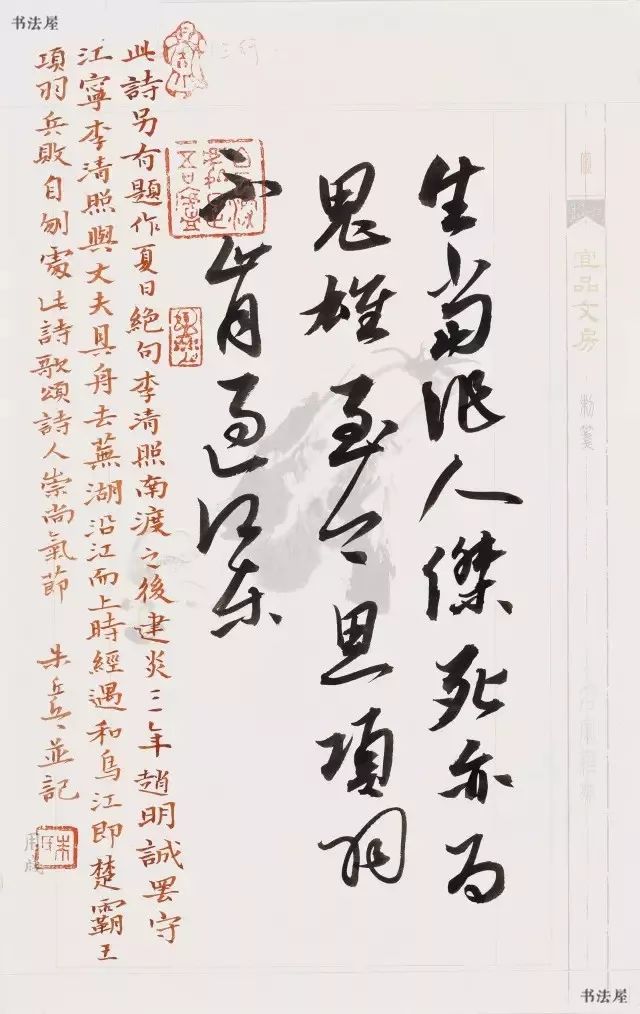 书法屋
生當作人傑死亦为
鬼雄至今思項羽
不肯过江东
此詩另有題作夏日絕句李清照南渡之後建炎三年趙明誠罢守
江寧李清照與丈夫具舟去蕪湖沿江而上時經過和烏江即楚霸王
項羽兵敗自刎處此詩歌頌詩人崇尚氣節 朱兵兵並記
宜品文房
粉箋
书法屋